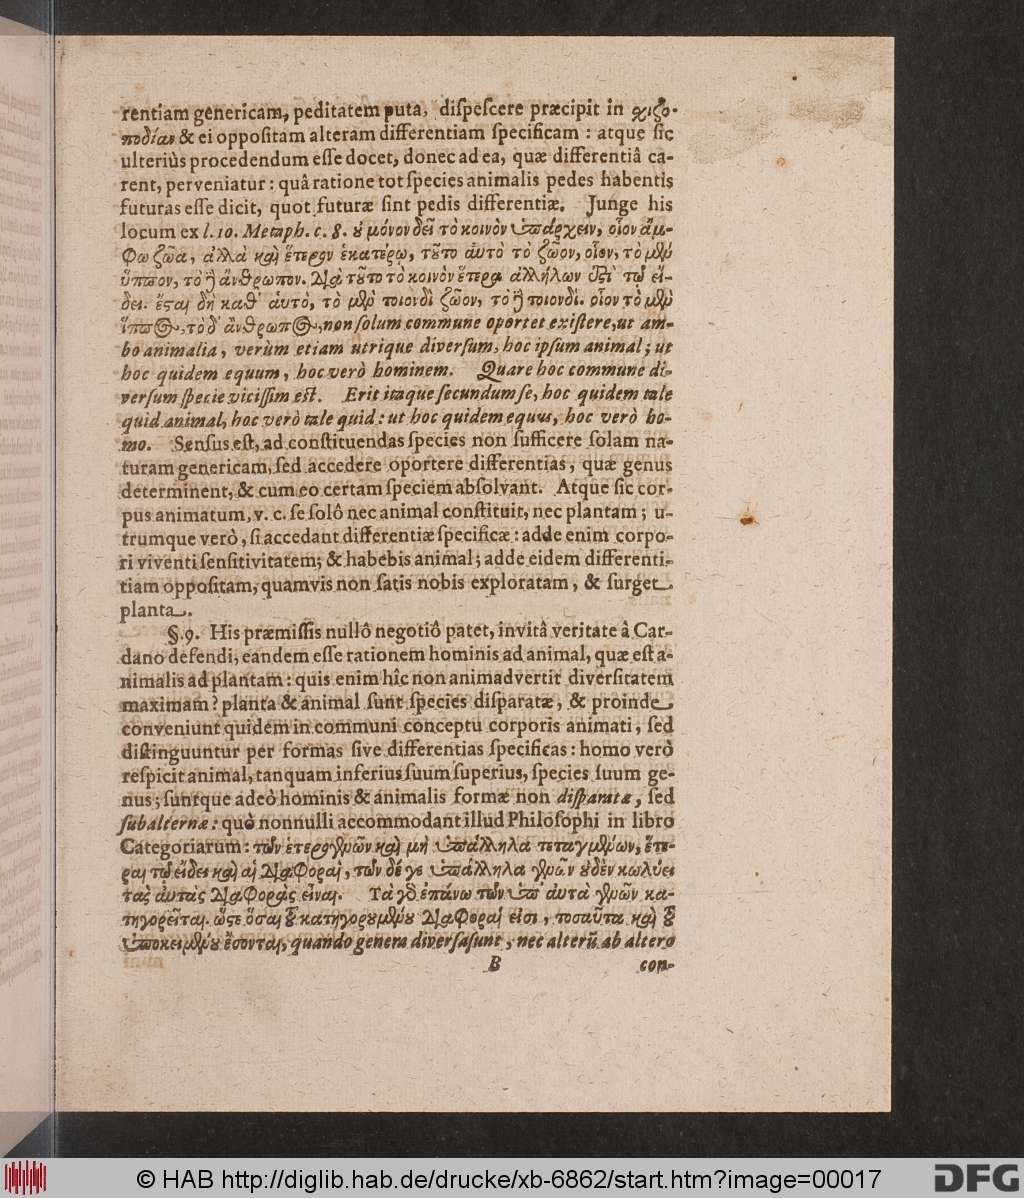 rentiam genericam, peditatem puta, diſpeſcere præcipit in σχιζο-
ποδίαν & ei oppoſitam alteram differentiam ſpecificam : atque ſic
ulteriùs procedendum eſſe docet, donec ad ea, quæ differentiâ ca-
rent, perveniatur : quâ ratione tot ſpecies animalis pedes habentis
futuras eſſe dicit, quot futuræ ſint pedis differentiæ. Junge his
locum ex l. 10. Metaph. c. 8. ȣ μόνον δεῖ τὸ κοινὸν ὑπάρχειν, οἷον ἄμ-
φω ζῶα, ἀλλὰ καὶ ἕτερον ἑκατέρῳ, τȣ͂το αὐτὸ τὸ ζῶον, οἷον, τὸ μὲν
ἵππον, τὸ ἢ ἄνθρωπον. Διὰ τȣ͂το τὸ κοινὸν ἕτερα ἀλλήλων ἐστὶ τῷ εἴ-
δει. ἔσται δὴ καθ᾽ αὑτὸ, τὸ μὲν τοιονδὶ ζῶον, τὸ ἢ τοιονδί. οἷον τὸ μὲν
ἵππος, τὸ δ᾽ ἄνθρωπος, non ſolum commune oportet exiſtere, ut am-
bo animalia, verùm etiam utrique diverſum, hoc ipſum animal; ut
hoc quidem equum, hoc verò hominem. Quare hoc commune di-
verſum ſpecie viciſſim eſt. Erit itaque ſecundum ſe, hoc quidem tale
quid animal, hoc verò tale quid : ut hoc quidem equus, hoc verò ho-
mo. Senſus eſt, ad conſtituendas ſpecies non ſufficere ſolam na-
turam genericam, ſed accedere oportere differentias, quæ genus
determinent, & cum eo certam ſpeciem abſolvant. Atque ſic cor-
pus animatum, v. c. ſe ſolô nec animal conſtituit, nec plantam ; u-
trumque verò, ſi accedant differentiæ ſpecificæ : adde enim corpo-
ri viventi ſenſitivitatem; & habebis animal; adde eidem differenti-
tiam oppoſitam, quamvis non ſatis nobis exploratam, & ſurget
planta.
§. 9. His præmiſſis nullô negotiô patet, invitâ veritate à Car-
dano defendi, eandem eſſe rationem hominis ad animal, quæ eſt a-
nimalis ad plantam : quis enim hîc non animadvertit diverſitatem
maximam? planta & animal ſunt ſpecies diſparatæ, & proinde
conveniunt quidem in communi conceptu corporis animati, ſed
diſtinguuntur per formas ſive differentias ſpecificas : homo verò
reſpicit animal, tanquam inferius ſuum ſuperius, ſpecies ſuum ge-
nus; ſuntque adeò hominis & animalis formæ non diſparatæ, ſed
ſubalternæ : quò nonnulli accommodant illud Philoſophi in libro
Categoriarum: τῶν ἑτερογενῶν καὶ μὴ ὑπάλληλα τεταγμένων, ἕτε-
ραι τῷ εἴδει καὶ αἱ διαφοραὶ, τῶν δέ γε ὑπάλληλα γενῶν ȣδὲν κωλύει
τὰς αὐτὰς διαφορὰς εἶναι. Τὰ γὸ ἐπάνω τῶν ὑπ᾽ αὐτὰ γενῶν κα-
τηγορεῖται. ὥστε ὅσαι τȣ͂ κατηγορȣμένȣ διαφοραὶ εἰσι, τοσαῦτα καὶ τȣ͂
ὑποκειμένȣ ἔσονται, quando genera diverſa ſunt, nec alterū ab altero
B con-
© HAB http://diglib.hab.de/drucke/xb-6862/start.htm?image=00017 DFG